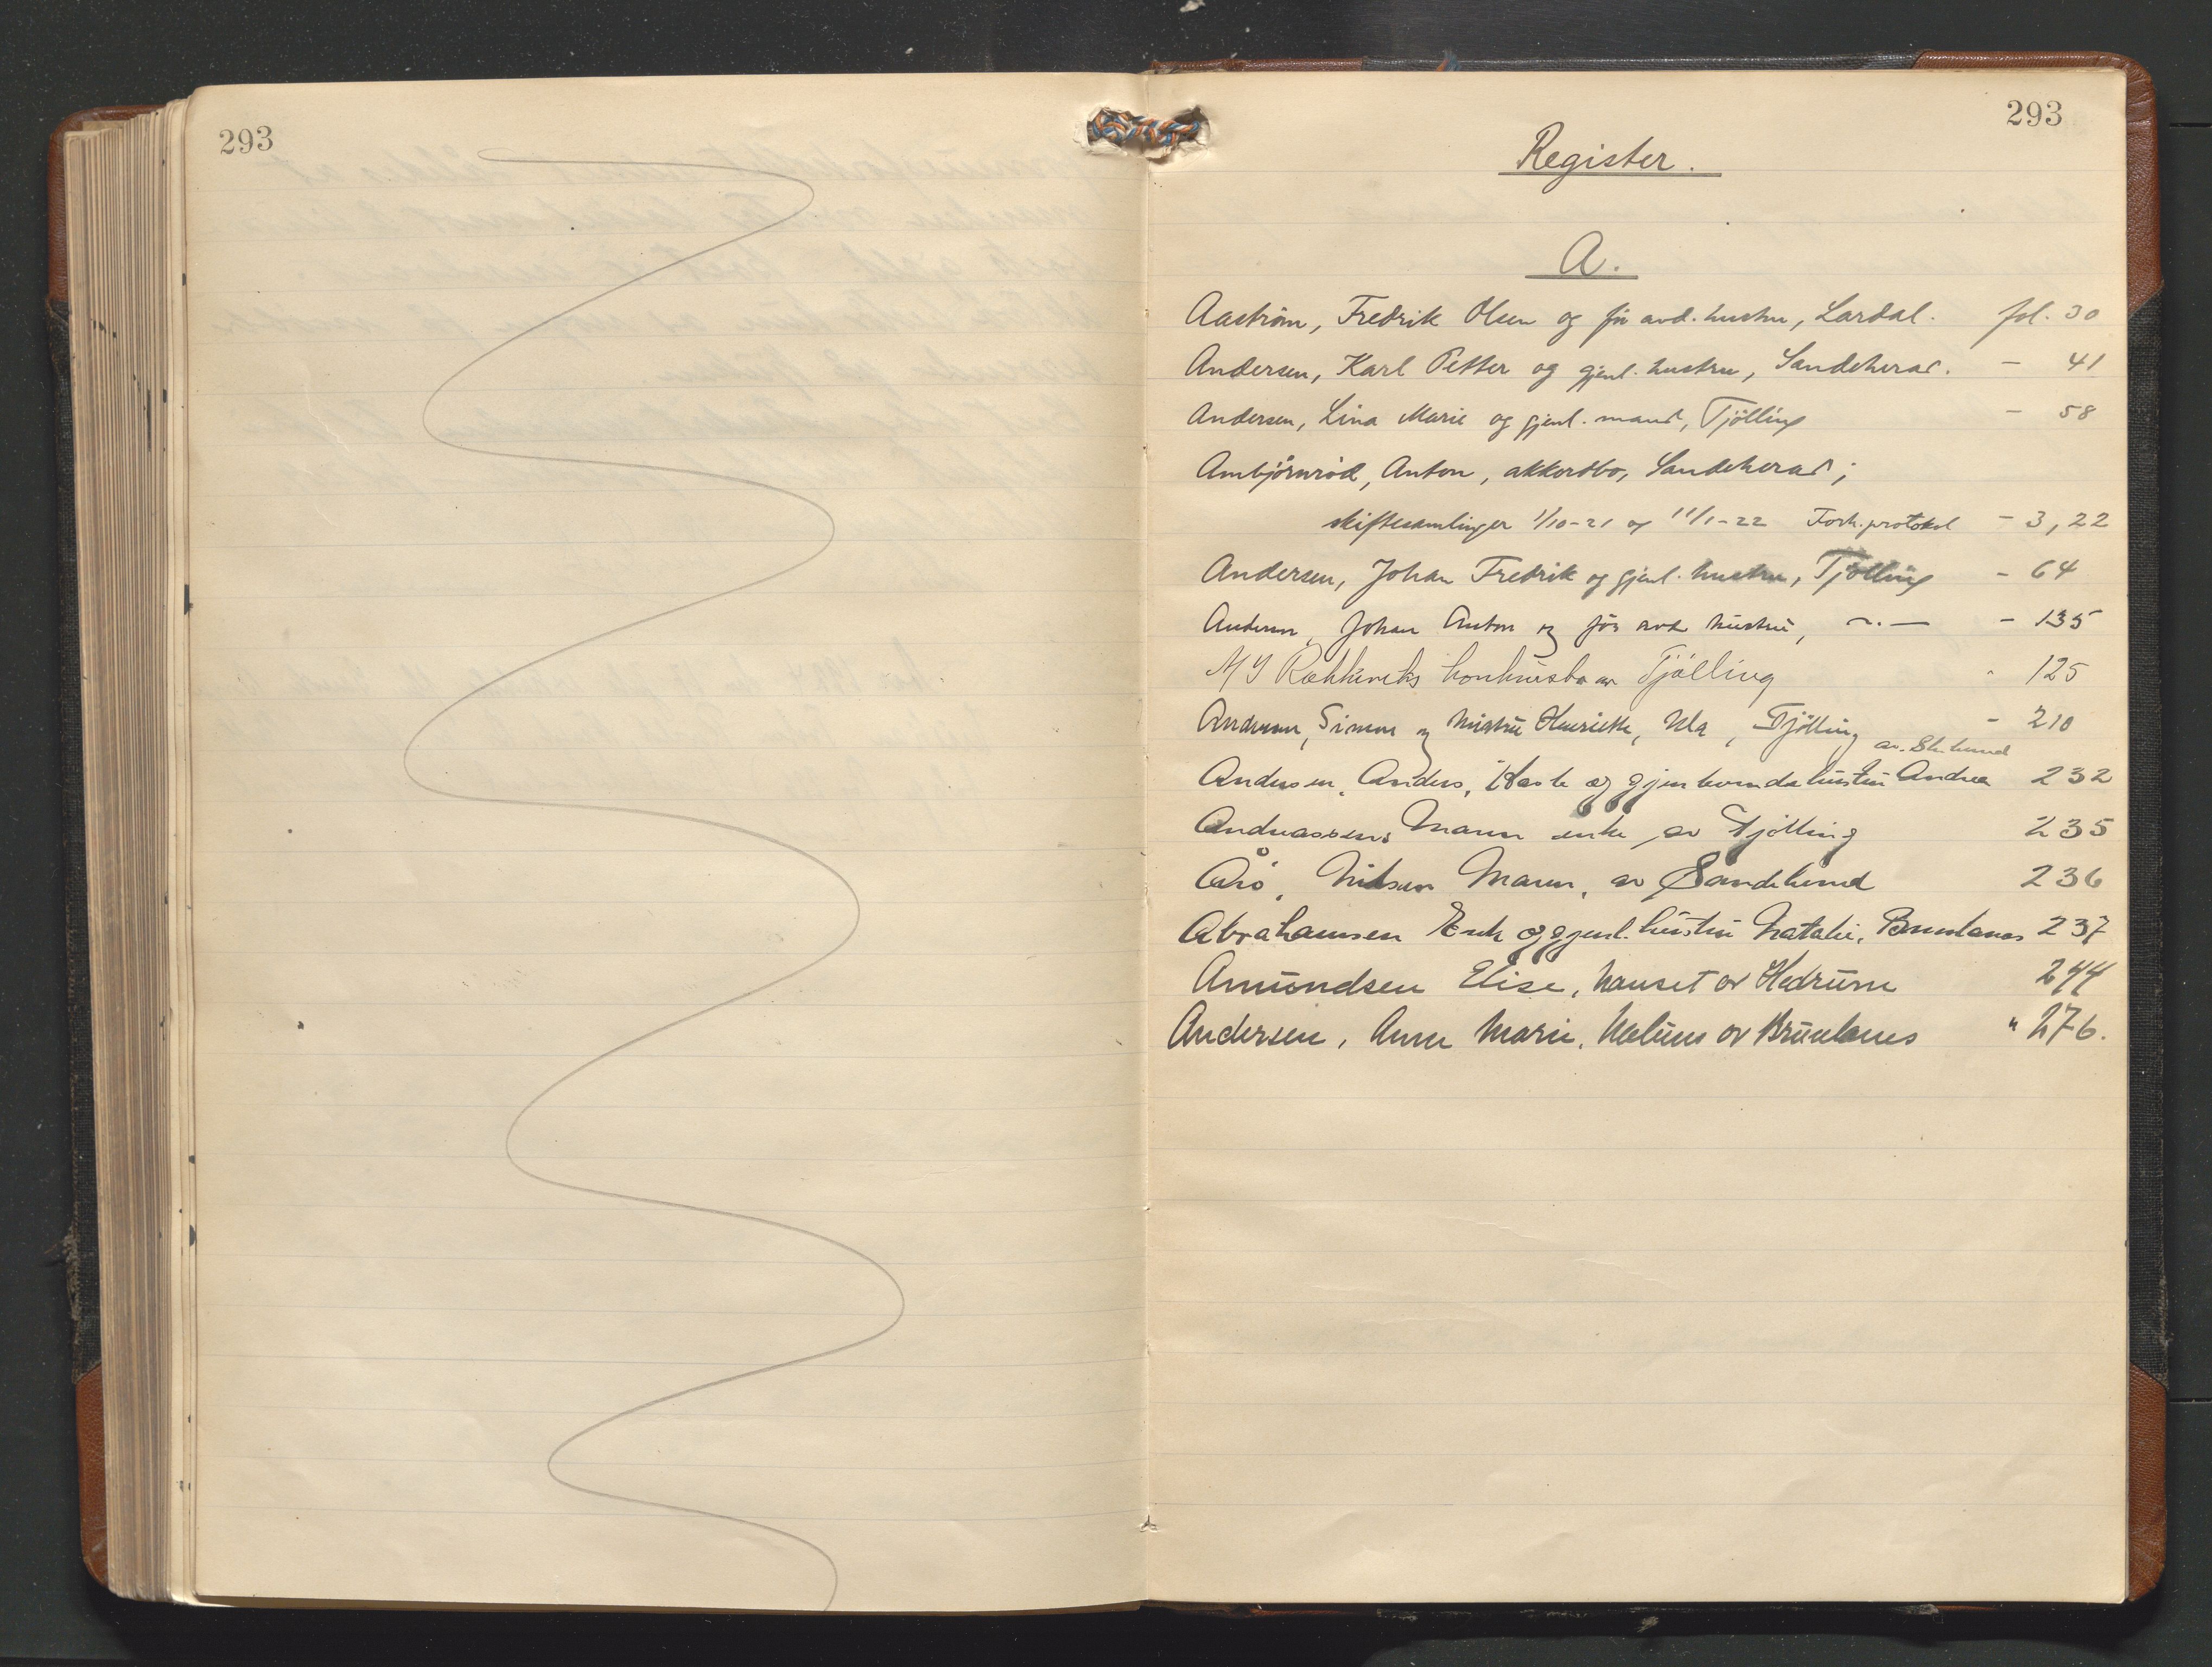 293
293
Register.
A.
Aaström, Fredrik Olsen og før avd. hustru, Lardal. fol. 30
Andersen, Karl Petter og gjenl. hustru, Sandeherad. - 41
Andersen, Lina Marie og gjenl. mand, Tjölling - 58
Ambjörnröd, Anton, akkordbo, Sandeherad;
skiftesamlinger 1/10-21 og 11/1-22 Forh.protokol - 3, 22
Andersen, Johan Fredrik og gjenl. hustru, Tjölling - 64
Andersen, Johan Anton og før avd hustru, -„- - 135
A/S konkursbo av Tjölling " 125
Andersen, Simon og hustru Henriette, Ula, Tjölling - 210
Andersen, Anders, og gjenlevende hustru Andrea 232
Andreassens, Maren enke av Tjölling 235
Nilsen Maren, av Sandeherred 236
Abrahamsen Erik og gjenl. hustru Natalie, Brunlanes 237
Amundsen Elise, hauset av Hedrum 244
Andersen, Anne Marie, av Brunlanes " 276.